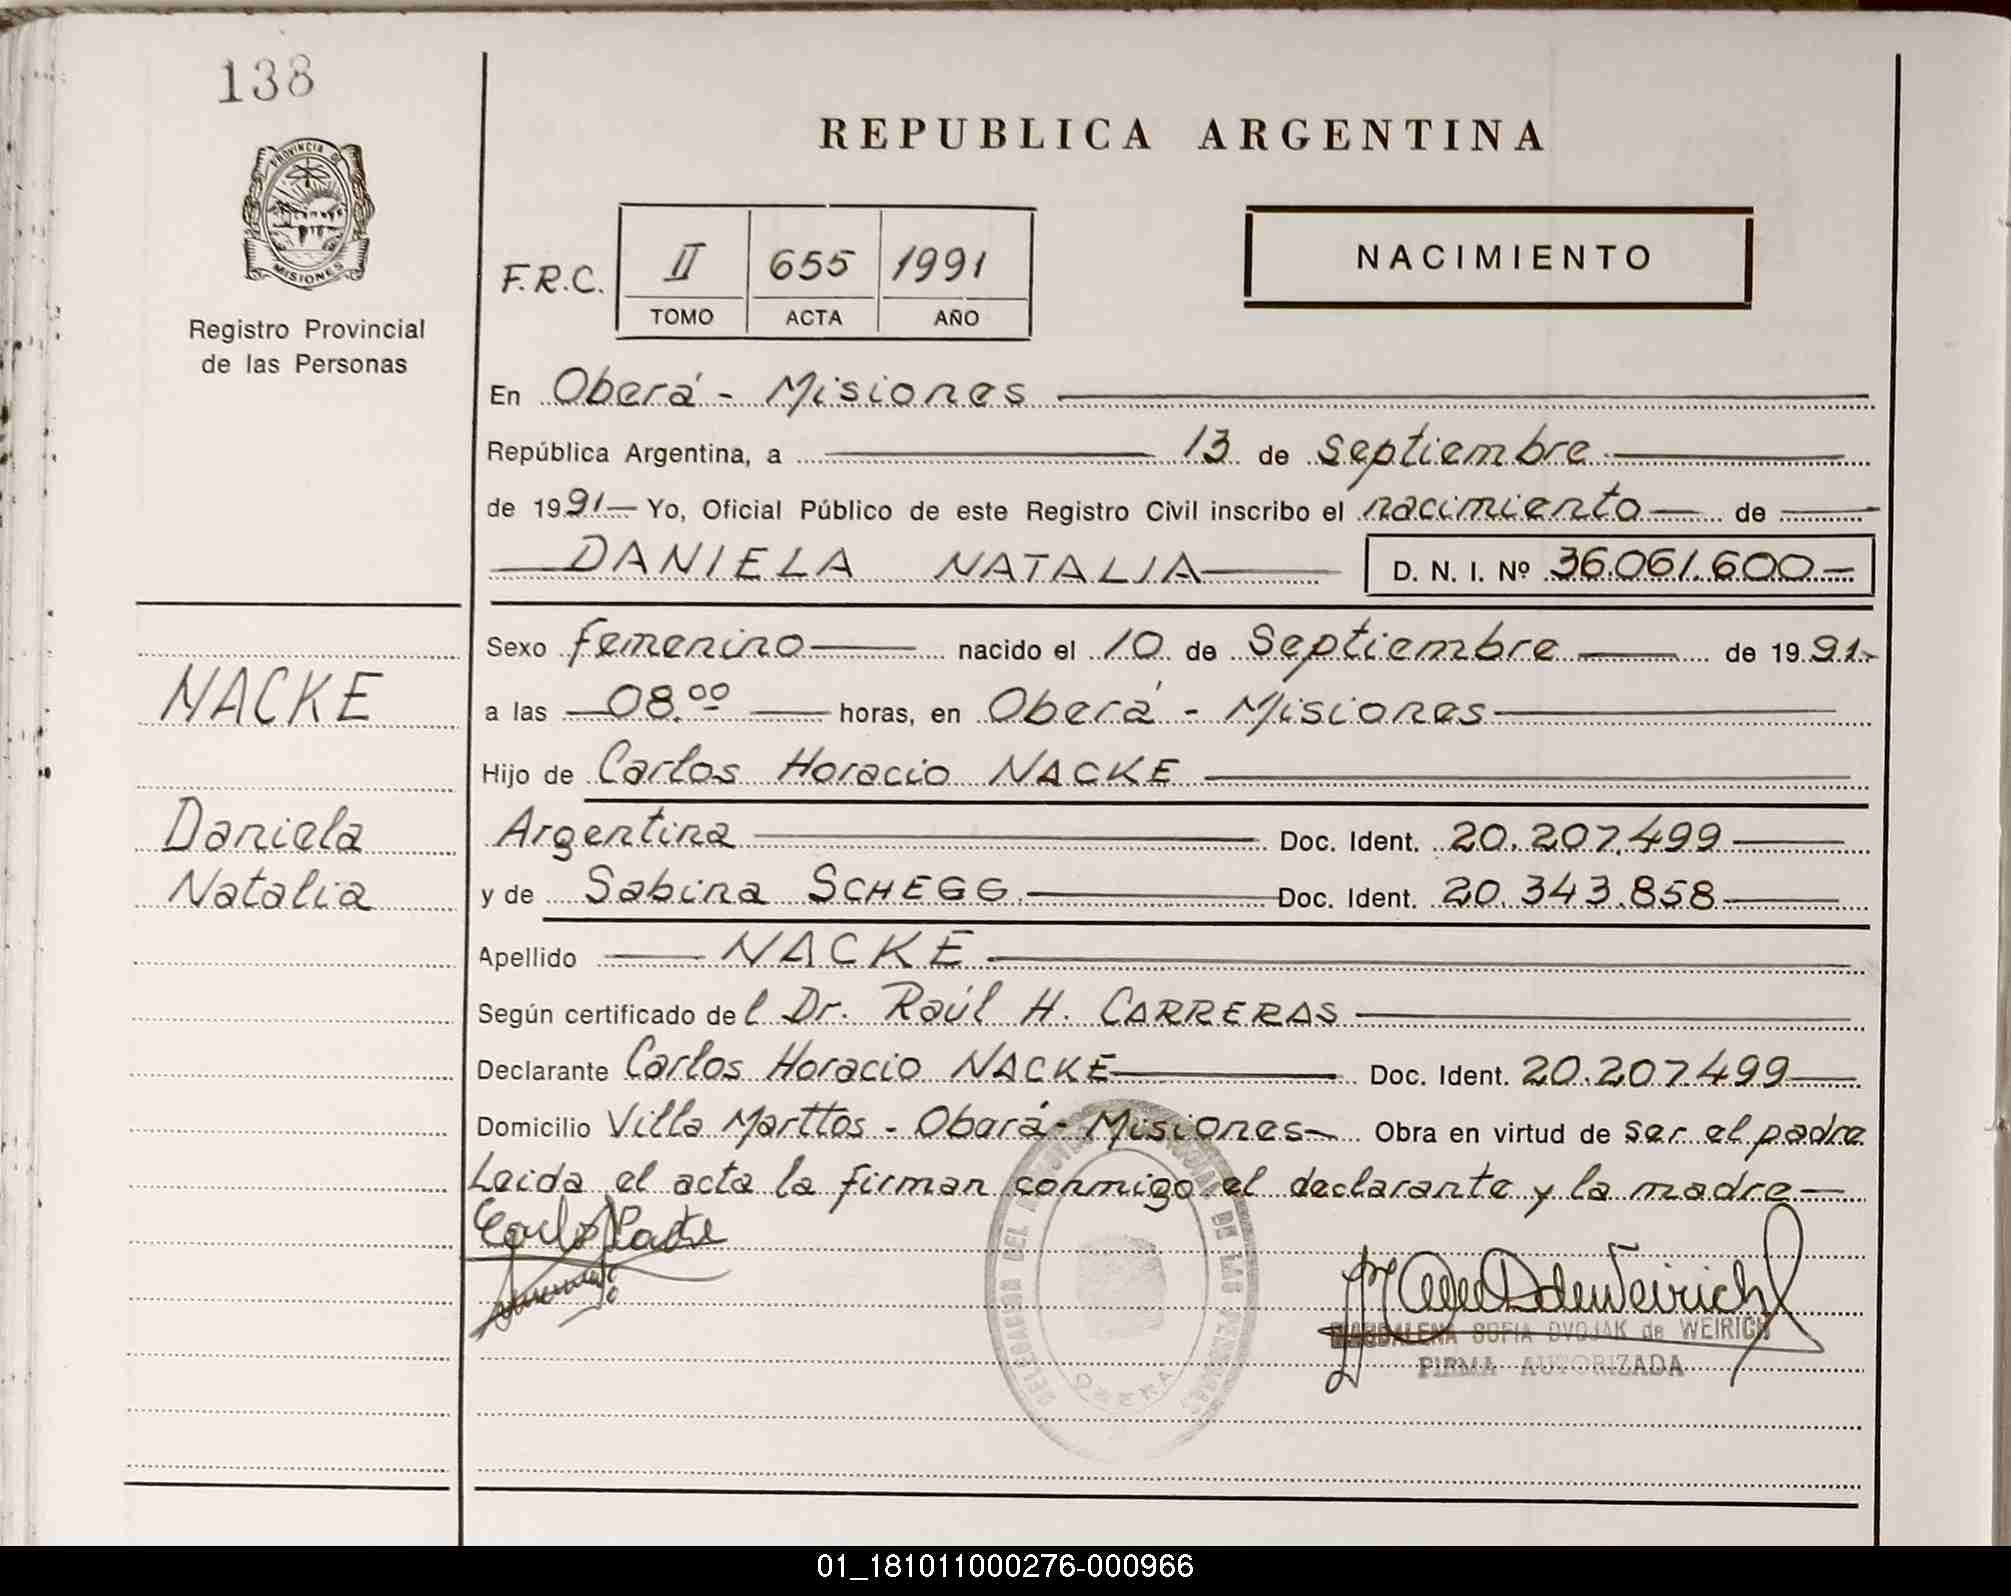 138
PROVINCIA DE
MISIONES
Registro Provincial
de las Personas
REPUBLICA ARGENTINA
F.R.C. II 655 1991
TOMO ACTA AÑO
NACIMIENTO
En Oberá - Misiones
República Argentina, a 13 de Septiembre
de 1991 Yo, Oficial Público de este Registro Civil inscribo el nacimiento de
DANIELA NATALIA D. N. I. Nº 36.061.600
NACKE
Daniela
Natalia
Sexo femenino nacido el 10 de Septiembre de 1991
a las 08.00 horas, en Oberá - Misiones
Hijo de Carlos Horacio NACKE
Argentina Doc. Ident. 20.207.499
y de Sabina SCHEGG Doc. Ident. 20.343.858
Apellido NACKE
Según certificado del Dr. Raúl H. CARRERAS
Declarante Carlos Horacio NACKE Doc. Ident. 20.207.499
Domicilio Villa Marttos - Oberá - Misiones Obra en virtud de ser el padre
Leida el acta la firman conmigo el declarante y la madre
MAGDALENA SOFIA DVOJAK de WEIRICH
FIRMA AUTORIZADA
DELEGACION DEL REGISTRO PROVINCIAL DE LAS PERSONAS
OBERA
01_181011000276-000966